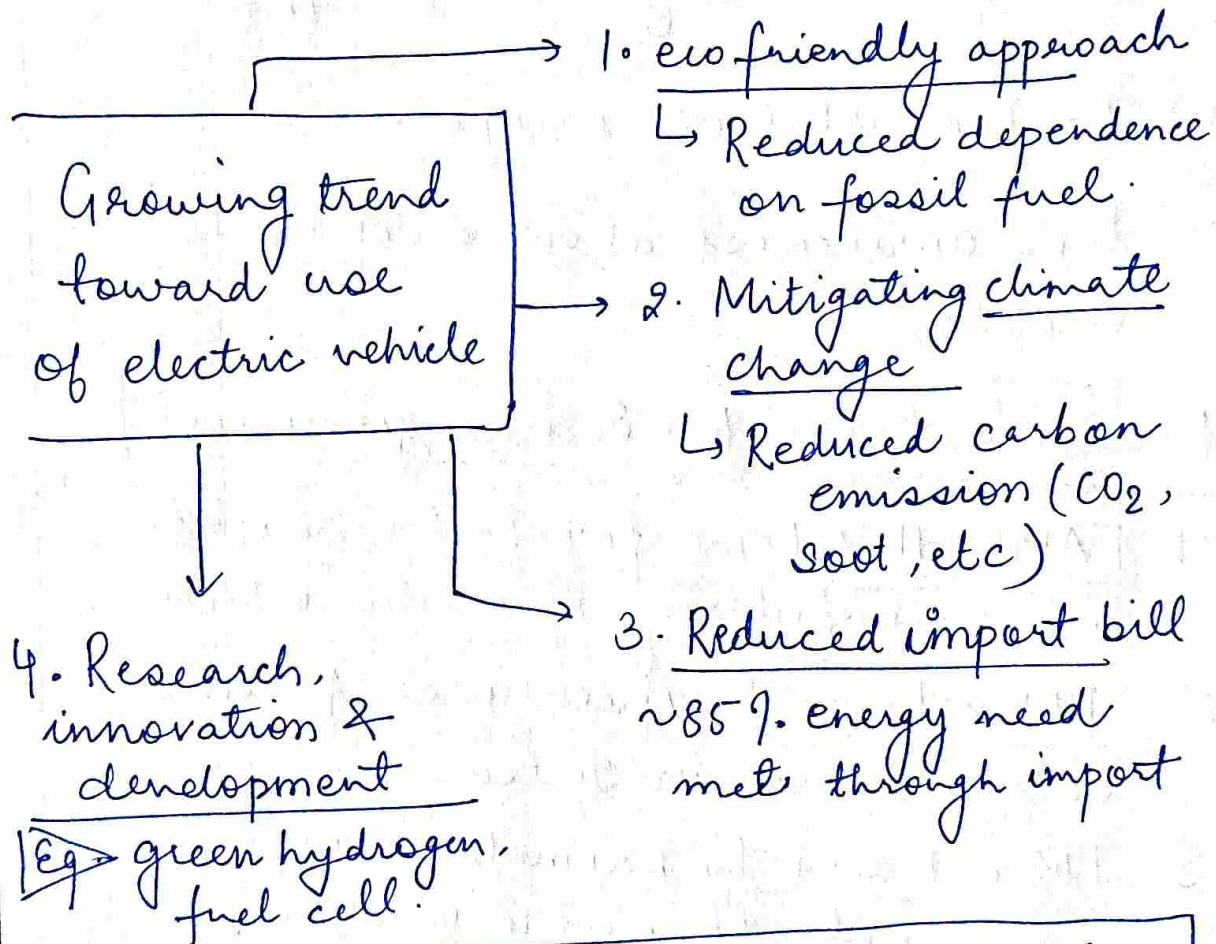 Growing trend
toward use
of electric vehicle
1. eco friendly approach
↳ Reduced dependence
on fossil fuel.
2. Mitigating climate
change
↳ Reduced carbon
emission (CO2,
soot, etc)
3. Reduced import bill
~85%. energy need
met through import
4. Research,
innovation &
development
Eg → green hydrogen,
fuel cell.